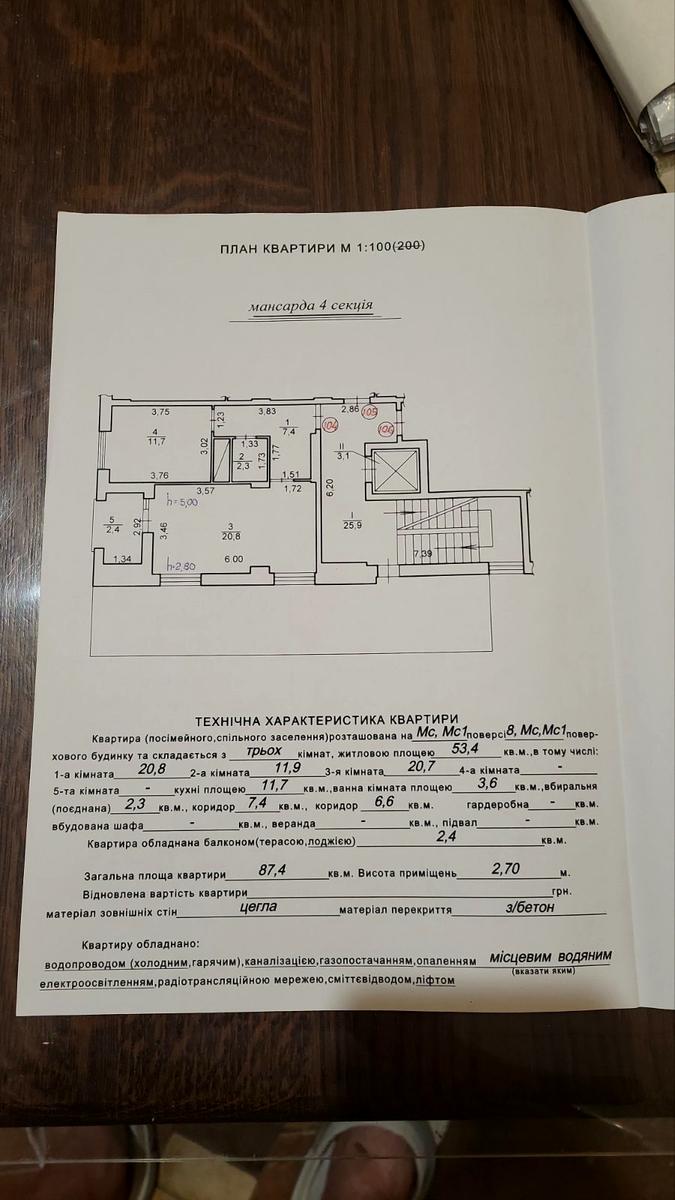 ПЛАН КВАРТИРИ М 1:100(200)
мансарда 4 секція
3,75
3,83
2,86
105
1,23
1
7,4
104
106
4
11,7
3,02
1,33
2
2,3
1,73
1,77
II
3,1
3,76
3,57
1,51
1,72
6,20
h=5,00
5
2,4
2,92
3,46
3
20,8
I
25,9
1,34
h=2,80
6.00
7,39
ТЕХНІЧНА ХАРАКТЕРИСТИКА КВАРТИРИ
Квартира (посімейного,спільного заселення)розташована на Мс, Мс1 поверсі 8, Мс,Мс1 повер-
хового будинку та складається з трьох кімнат, житловою площею 53,4 кв.м.,в тому числі:
1-а кімната 20,8 2-а кімната 11,9 3-я кімната 20,7 4-а кімната -
5-та кімната - кухні площею 11,7 кв.м.,ванна кімната площею 3,6 кв.м.,вбиральня
(поєднана) 2,3 кв.м., коридор 7,4 кв.м., коридор 6,6 кв.м. гардеробна - кв.м.
вбудована шафа - кв.м., веранда - кв.м., підвал - кв.м.
Квартира обладнана балконом(терасою,лоджією) 2,4 кв.м.
Загальна площа квартири 87,4 кв.м. Висота приміщень 2,70 м.
Відновлена вартість квартири грн.
матеріал зовнішніх стін цегла матеріал перекриття з/бетон
Квартиру обладнано:
водопроводом (холодним,гарячим),каналізацією,газопостачанням,опаленням місцевим водяним
(вказати яким)
електроосвітленням,радіотрансляційною мережею,сміттєвідводом,ліфтом